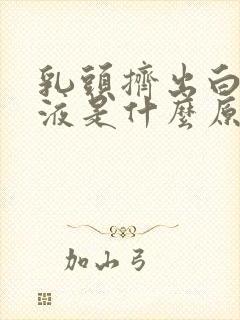 乳頭擠出白
液是什麼原
加山弓